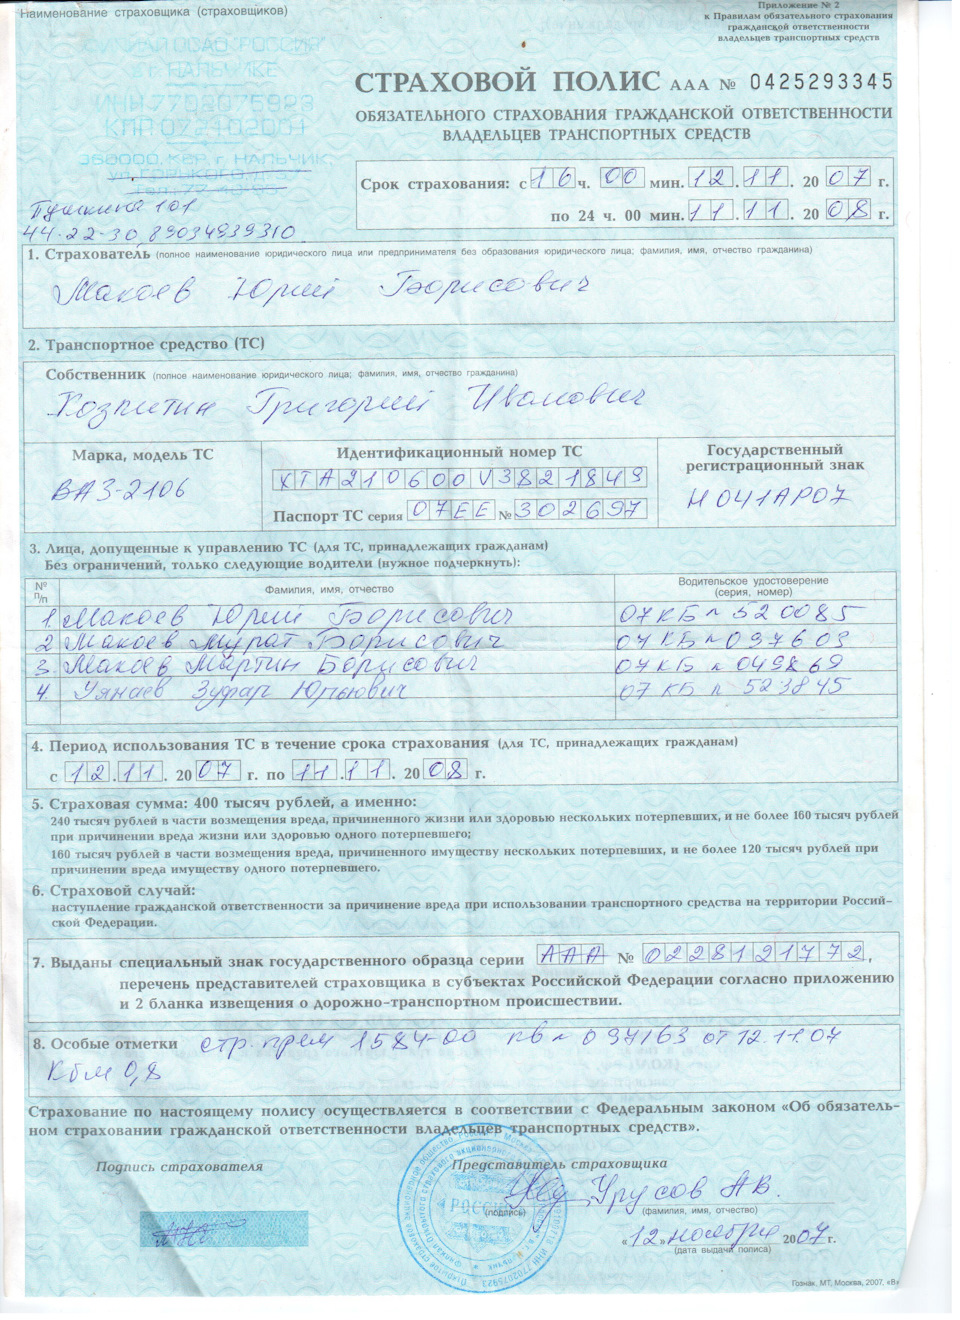 Наименование страховщика (страховщиков)
Приложение № 2
к Правилам обязательного страхования
гражданской ответственности
владельцев транспортных средств
ОСАО РОССИЯ
в г. НАЛЬЧИКЕ
ИНН 7702075923
КПП 072102001
360000, КБР, г. НАЛЬЧИК,
Пушкина 101
44-22-30, 89034939310
СТРАХОВОЙ ПОЛИС ААА № 0425293345
ОБЯЗАТЕЛЬНОГО СТРАХОВАНИЯ ГРАЖДАНСКОЙ ОТВЕТСТВЕННОСТИ
ВЛАДЕЛЬЦЕВ ТРАНСПОРТНЫХ СРЕДСТВ
Срок страхования: с 16 ч. 00 мин. 12.11.2007 г.
по 24 ч. 00 мин. 11.11.2008 г.
1. Страхователь (полное наименование юридического лица или предпринимателя без образования юридического лица; фамилия, имя, отчество гражданина)
Макоев Юрий Борисович
2. Транспортное средство (ТС)
Собственник (полное наименование юридического лица; фамилия, имя, отчество гражданина)
Григорий Иванович
Марка, модель ТС
Идентификационный номер ТС
Государственный
регистрационный знак
ВАЗ-2106
XTA210600V3821849
Н041АР07
Паспорт ТС серия 07ЕЕ № 302697
3. Лица, допущенные к управлению ТС (для ТС, принадлежащих гражданам)
Без ограничений, только следующие водители (нужное подчеркнуть):
№ п/п
Фамилия, имя, отчество
Водительское удостоверение
(серия, номер)
1 Макоев Юрий Борисович 07 КБ № 520085
2 Макоев Мурат Борисович 07 КБ № 097603
3 Макоев Мартин Борисович 07 КБ № 049869
4. Уянаев Зуфар Юрьевич 07 КБ № 523845
4. Период использования ТС в течение срока страхования (для ТС, принадлежащих гражданам)
с 12.11.2007 г. по 11.11.2008 г.
5. Страховая сумма: 400 тысяч рублей, а именно:
240 тысяч рублей в части возмещения вреда, причиненного жизни или здоровью нескольких потерпевших, и не более 160 тысяч рублей
при причинении вреда жизни или здоровью одного потерпевшего;
160 тысяч рублей в части возмещения вреда, причиненного имуществу нескольких потерпевших, и не более 120 тысяч рублей при
причинении вреда имуществу одного потерпевшего.
6. Страховой случай:
наступление гражданской ответственности за причинение вреда при использовании транспортного средства на территории Россий-
ской Федерации.
7. Выданы специальный знак государственного образца серии ААА № 0228121772,
перечень представителей страховщика в субъектах Российской Федерации согласно приложению
и 2 бланка извещения о дорожно-транспортном происшествии.
8. Особые отметки стр. прем 1584-00 кв № 097163 от 12.11.07
Кбм 0,8
Страхование по настоящему полису осуществляется в соответствии с Федеральным законом «Об обязатель-
ном страховании гражданской ответственности владельцев транспортных средств».
Подпись страхователя
Представитель страховщика
РОССИЯ
Урусов А.В.
(подпись)
(фамилия, имя, отчество)
«12» ноября 2007 г.
(дата выдачи полиса)
Гознак, МТ, Москва, 2007, «В»